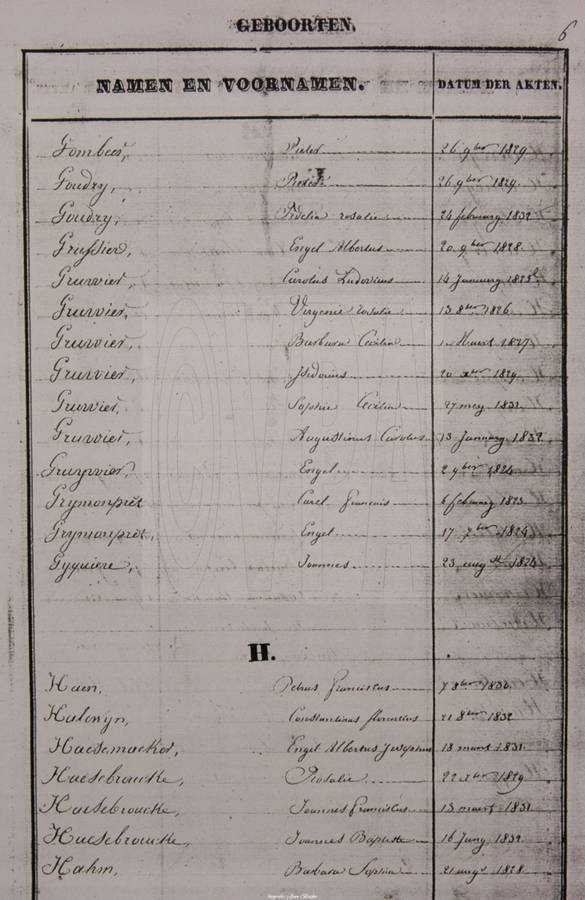 GEBOORTEN.
6
NAMEN EN VOORNAMEN. DATUM DER AKTEN.
Gombeer, Pieter 26 9ber 1829
Goudry, 26 9ber 1829.
Goudry, Fidelia rosalie 24 february 1832
Engel Albertus 20 9ber 1828.
Gruwier, Carolus Ludovicus 14 January
Gruwier, Virginie rosalie 13 8ber 1826.
Gruwier, Barbara Cecilia 1 Maart 1827
Gruwier, Isidorius 20 xber 1829
Gruwier, Sophie Cecilia 27 mey 1831.
Gruwier, Augustinus Carolus 13 January 1832
Gruywier, Engel 2 9ber 1824
Grymonprêt Carel francois 6 february 1823.
Grymonprêt, Engel 17 7ber 1824
Gyquiere, Joannes 23 augst 1824
H.
Haen, Petrus franciscus 7 8ber 1830
Halewyn, Constantinus florentius 21 8ber 1832
Haesemacker, Engel Albertus Josephus 18 maart 1831
Haesebroucke, Rosalie 22 xber 1829
Haesebroucke, Joannes franciscus 13 maart 1831
Haesebroucke, Joannes Baptiste 16 Juny 1832
Hahm, Barbara Sophia 21 augt 1828